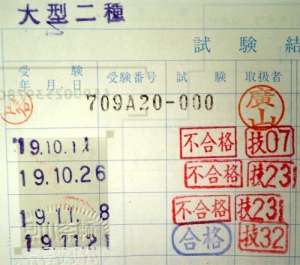 大型二種
試験結
受験 年月日 受験番号 試験 取扱者
709A20-000 廣山
19.10.11 不合格 技07
19.10.26 不合格 技23
19.11.8 不合格 技23
19.11.21 合格 技32